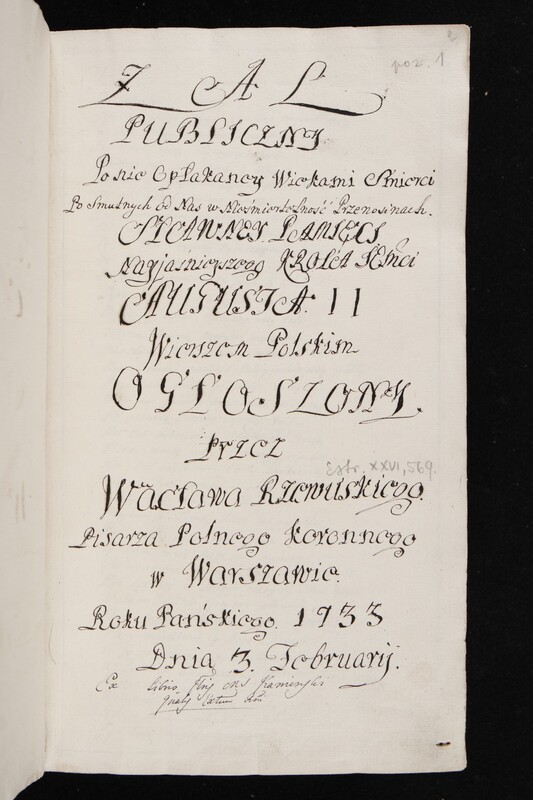 2
poz. 1
ŻAL
PUBLICZNY
Po nie Opłakaney Wiekami Smierci
Po Smutnych od Nas w Nieśmiertelność Przenosinach.
SŁAWNEY PAMIĘCI
Nayjaśnieyszego KROLA JEMci
AUGUSTA II
Wierszem Polskim
OGŁOSZONY.
Przez
Estr. XXVI, 569.
Wacława Rzewuskiego.
Pisarza Polnego Koronnego
w Warszawie.
Roku Pańskiego. 1733
Dnia 3. Februarij.
Ex libris Kamienski